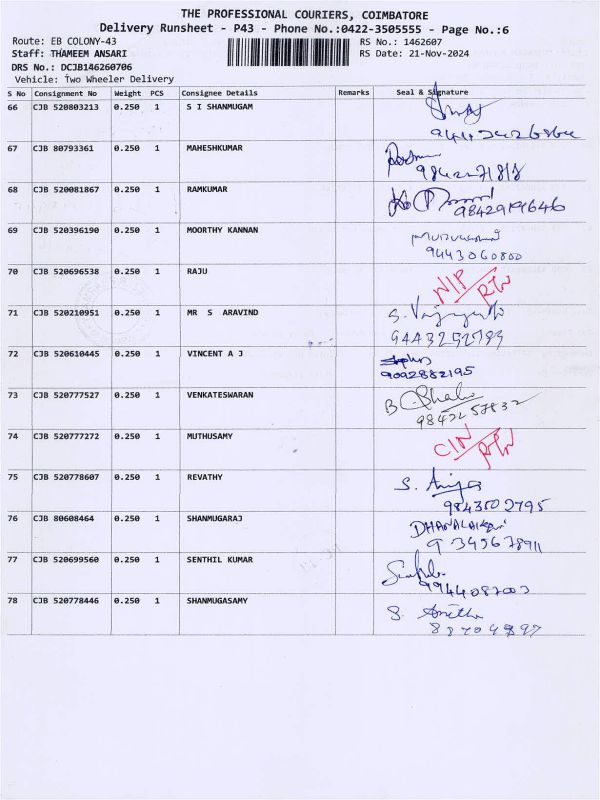 THE PROFESSIONAL COURIERS, COIMBATORE
Delivery Runsheet - P43 - Phone No.:0422-3505555 - Page No.:6
Route: EB COLONY-43 RS No.: 1462607
Staff: THAMEEM ANSARI RS Date: 21-Nov-2024
DRS No.: DCJB146260706
Vehicle: Two Wheeler Delivery
S No Consignment No Weight PCS Consignee Details Remarks Seal & Signature
66 CJB 520803213 0.250 1 S I SHANMUGAM
67 CJB 80793361 0.250 1 MAHESHKUMAR
68 CJB 520081867 0.250 1 RAMKUMAR
9842919646
69 CJB 520396190 0.250 1 MOORTHY KANNAN
9443060800
70 CJB 520696538 0.250 1 RAJU
71 CJB 520210951 0.250 1 MR S ARAVIND
72 CJB 520610445 0.250 1 VINCENT A J
9092882195
73 CJB 520777527 0.250 1 VENKATESWARAN
74 CJB 520777272 0.250 1 MUTHUSAMY
75 CJB 520778607 0.250 1 REVATHY
9843502795
76 CJB 80608464 0.250 1 SHANMUGARAJ
9345678911
77 CJB 520699560 0.250 1 SENTHIL KUMAR
78 CJB 520778446 0.250 1 SHANMUGASAMY